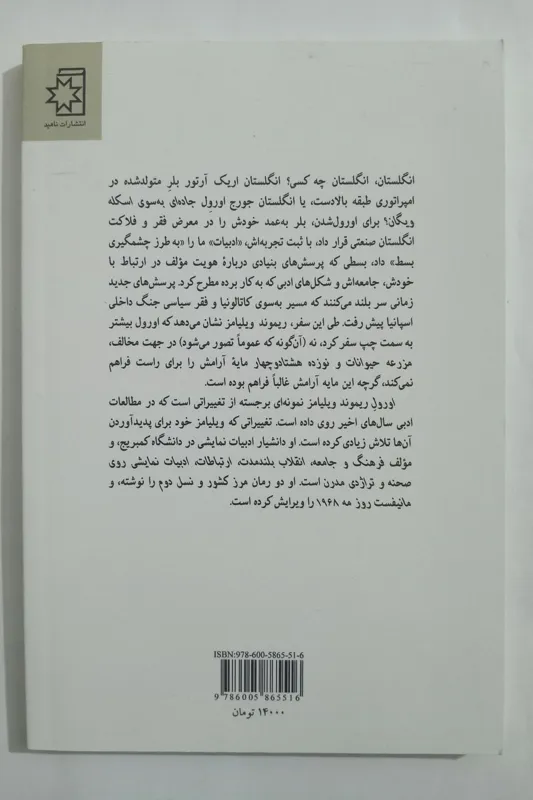 انتشارات ناهید
انگلستان، انگلستان چه کسی؟ انگلستان اریک آرتور بلرِ متولدشده در
امپراتوری طبقه بالادست، یا انگلستان جورج اورول جاده‌ای به‌سوی اسکله
ویگان؟ برای اورول‌شدن، بلر به‌عمد خودش را در معرض فقر و فلاکت
انگلستان صنعتی قرار داد، با ثبت تجربه‌اش، «ادبیات» ما را «به طرز چشمگیری
بسط» داد، بسطی که پرسش‌های بنیادی دربارهٔ هویت مؤلف در ارتباط با
خودش، جامعه‌اش و شکل‌های ادبی که به کار برده مطرح کرد. پرسش‌های جدید
زمانی سر بلند می‌کنند که مسیر به‌سوی کاتالونیا و فقر سیاسی جنگ داخلی
اسپانیا پیش رفت. طی این سفر، ریموند ویلیامز نشان می‌دهد که اورول بیشتر
به سمت چپ سفر کرد، نه (آن‌گونه که عموماً تصور می‌شود) در جهت مخالف،
مزرعه حیوانات و نوزده هشتادوچهار مایهٔ آرامش را برای راست فراهم
نمی‌کند، گرچه این مایه آرامش غالباً فراهم بوده است.
اورولِ ریموند ویلیامز نمونه‌ای برجسته از تغییراتی است که در مطالعات
ادبی سال‌های اخیر روی داده است. تغییراتی که ویلیامز خود برای پدیدآوردن
آن‌ها تلاش زیادی کرده است. او دانشیار ادبیات نمایشی در دانشگاه کمبریج، و
مؤلف فرهنگ و جامعه، انقلاب بلندمدت، ارتباطات، ادبیات نمایشی روی
صحنه و تراژدی مدرن است. او دو رمان مرز کشور و نسل دوم را نوشته، و
مانیفست روز مه ۱۹۶۸ را ویرایش کرده است.
ISBN:978-600-5865-51-6
9 786005 865516
۱۴۰۰۰ تومان